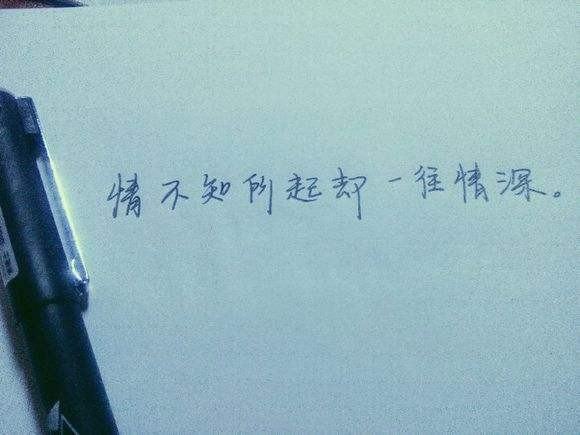 情不知所起却一往情深。